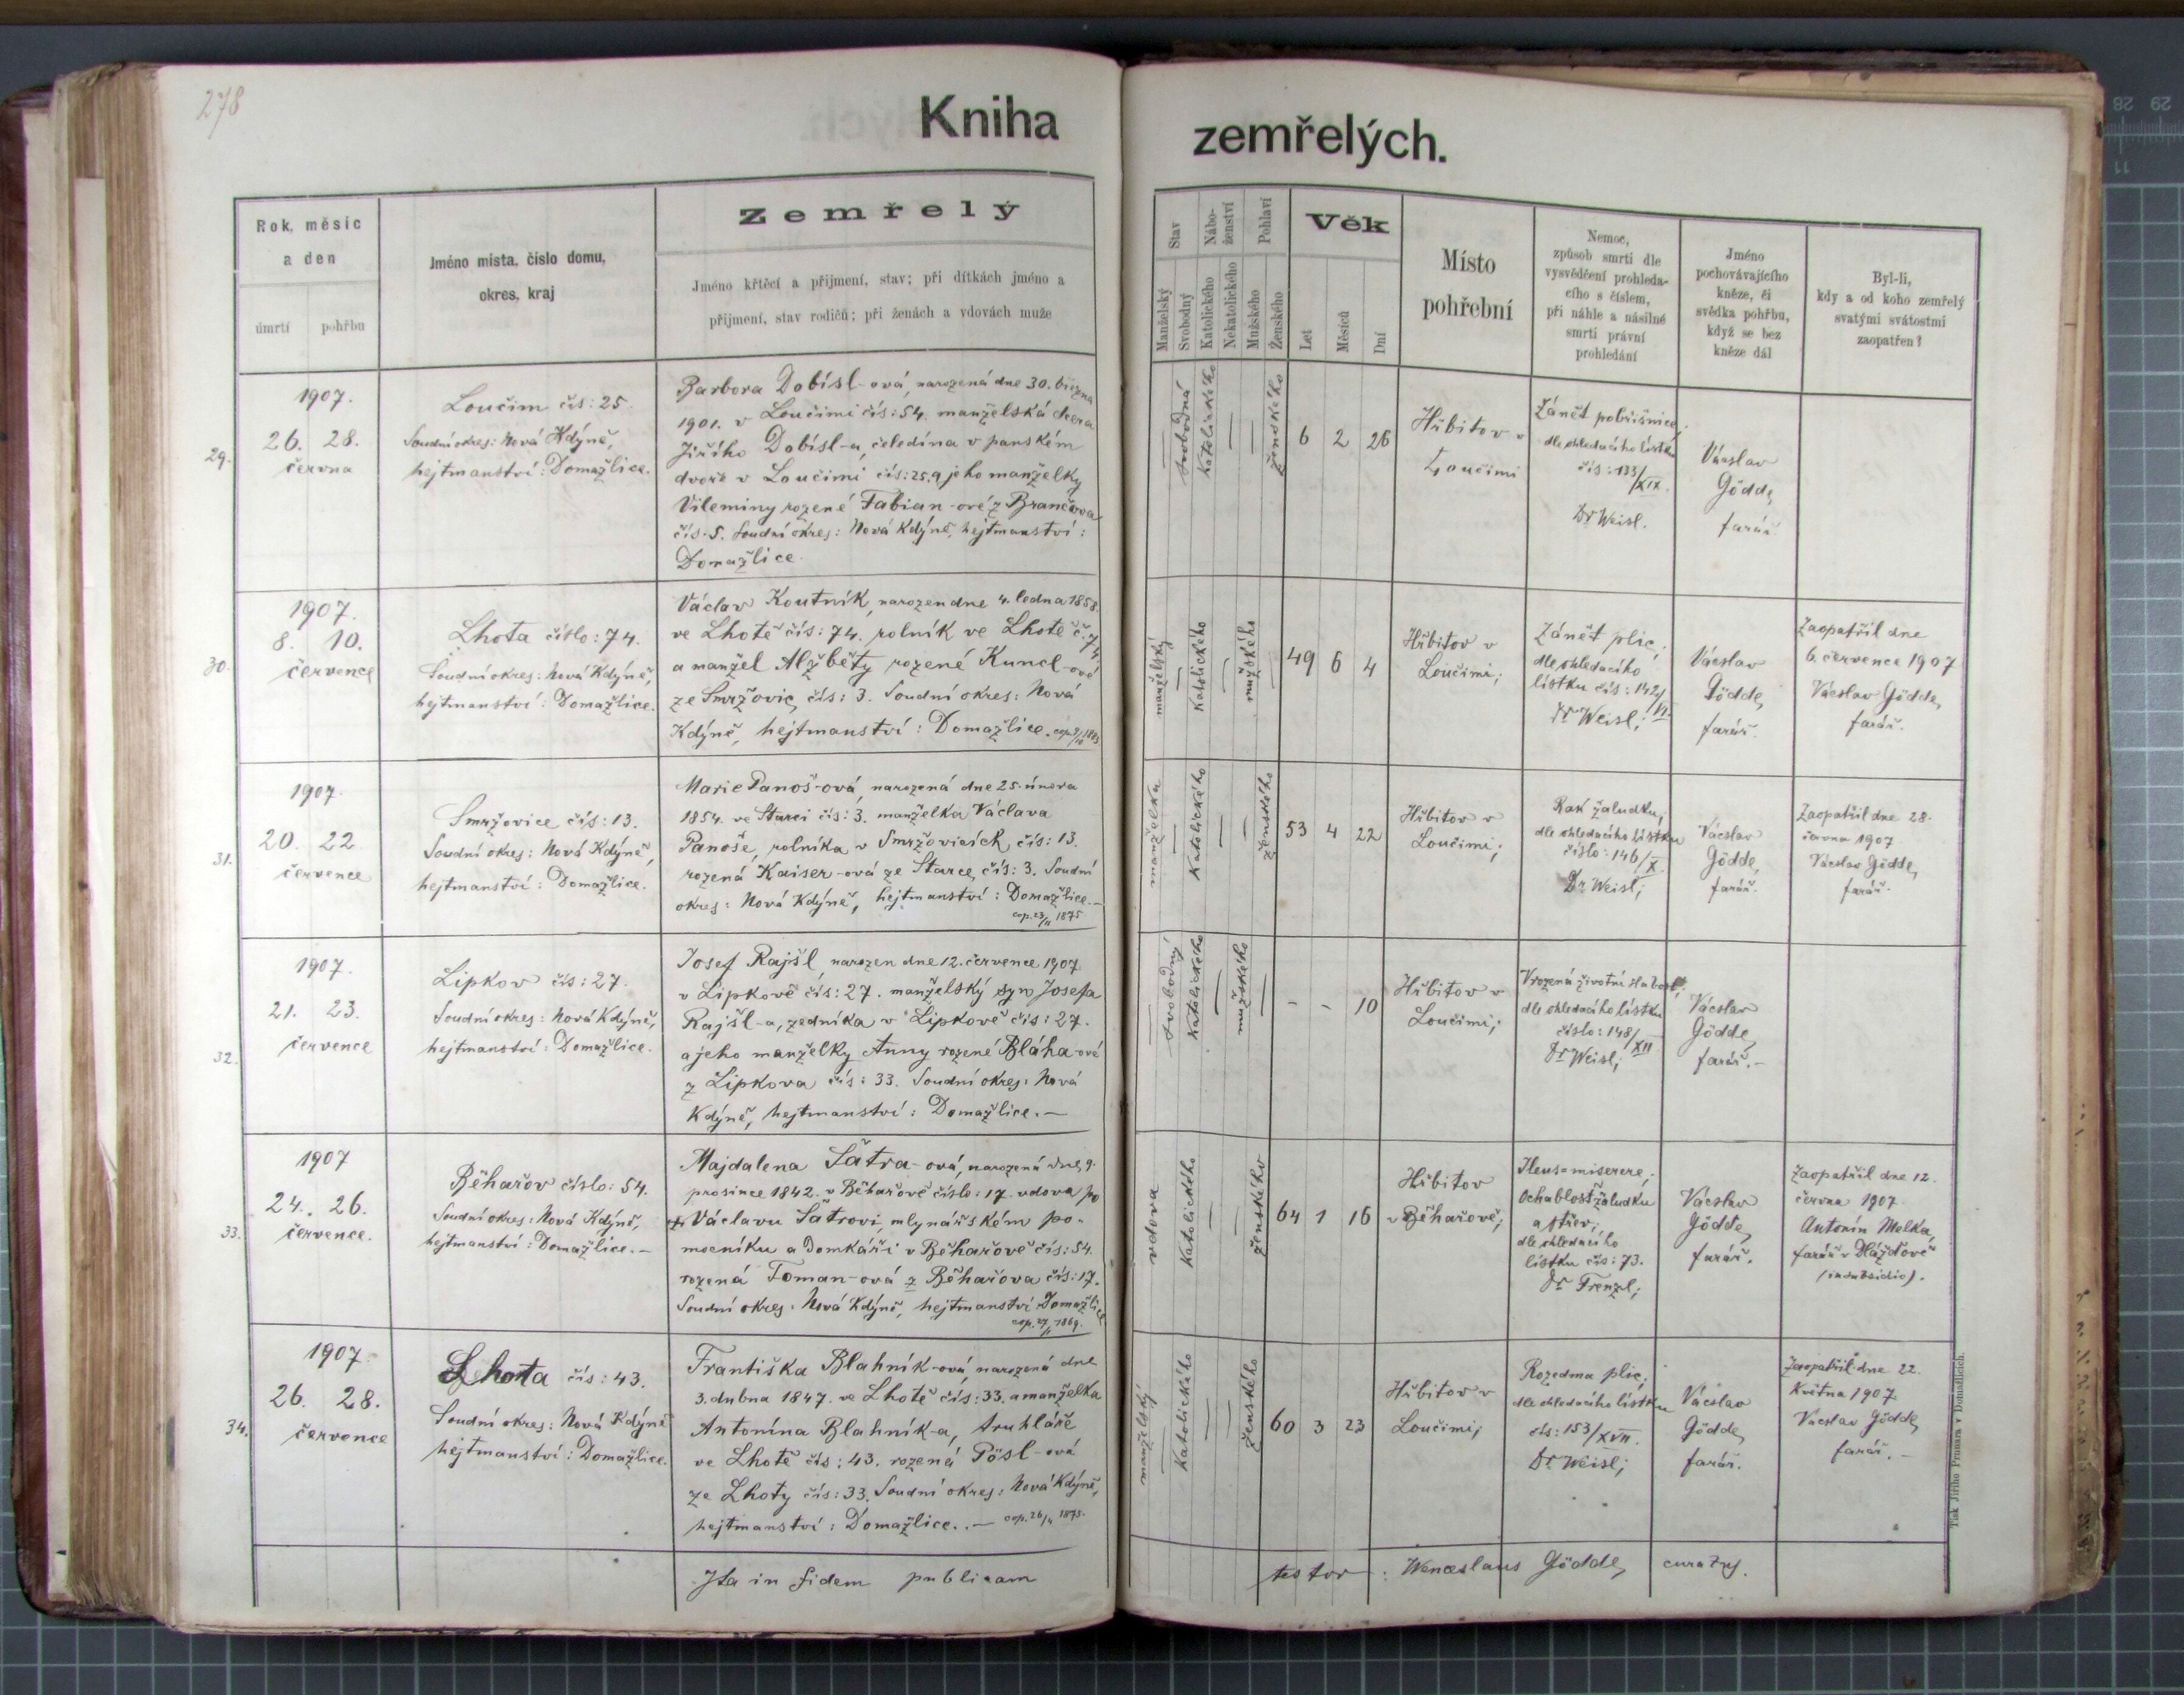 278
Kniha zemřelých.
Rok, měsíc
a den
úmrtí pohřbu
Jméno místa, číslo domu,
okres, kraj
Zemřelý
Jméno křtěcí a přijmení, stav; při dítkách jméno a
přijmení, stav rodičů; při ženách a vdovách muže
Stav
Manželský
Svobodný
Nábo-
ženství
Katolického
Nekatolického
Pohlaví
Mužského
Ženského
Věk
Let
Měsíců
Dní
Místo
pohřební
Nemoc,
způsob smrti dle
vysvědčení prohleda-
cího s číslem,
při náhle a násilné
smrti právní
prohledání
Jméno
pochovávajícího
kněze, či
svědka pohřbu,
když se bez
kněze dál
Byl-li,
kdy a od koho zemřelý
svatými svátostmi
zaopatřen?
29.
1907.
26. 28.
června
Loučim čís: 25.
Soudní okres: Nová Kdýně,
hejtmanství: Domažlice.
Barbora Dobísl-ová, narozená dne 30. března
1901. v Loučimi čís: 54. manželská dcera
Jiřího Dobísl-a, čeledína v panském
dvoře v Loučimi čís: 25. a jeho manželky
Vileminy rozené Fabian-ové z Brančova
čís. 5. Soudní okres: Nová Kdýně, hejtmanství:
Domažlice.
svobodná
Katolického
ženského
6 2 26
Hřbitov v
Loučimi
Zánět pobřišnice;
dle ohledacího lístku
čís: 133/XIX.
Dr Weisl.
Václav
Gödde,
farář.
30.
1907.
8. 10.
července
Lhota číslo: 74.
Soudní okres: Nová Kdýně,
hejtmanství: Domažlice.
Václav Koutník, narozen dne 4. ledna 1858.
ve Lhotě čís: 74. rolník ve Lhotě č. 74
a manžel Alžběty rozené Kuncl-ové
ze Smržovic, čís: 3. Soudní okres: Nová
Kdýně, hejtmanství: Domažlice.
manželský
Katolického
mužského
49 6 4
Hřbitov v
Loučimi;
Zánět plic;
dle ohledacího
lístku čís: 142/VI.
Dr Weisl;
Václav
Gödde,
farář.
Zaopatřil dne
6. července 1907
Václav Gödde,
farář.
31.
1907.
20. 22.
července
Smržovice čís: 13.
Soudní okres: Nová Kdýně,
hejtmanství: Domažlice.
Marie Panoš-ová, narozená dne 25. února
1854. ve Starci čís: 3. manželka Václava
Panoše, rolníka v Smržovicích čís: 13.
rozená Kaiser-ová ze Starce, čís: 3. Soudní
okres: Nová Kdýně, hejtmanství: Domažlice.—
cop. 23/11 1875
manželka
Katolického
ženského
53 4 22
Hřbitov v
Loučimi;
Rak žaludku;
dle ohledacího lístku
číslo: 146/X.
Dr Weisl;
Václav
Gödde,
farář.
Zaopatřil dne 28.
června 1907
Václav Gödde,
farář.
32.
1907.
21. 23.
července
Lipkov čís: 27.
Soudní okres: Nová Kdýně,
hejtmanství: Domažlice.
Josef Rajšl, narozen dne 12. července 1907
v Lipkově čís: 27. manželský syn Josefa
Rajšl-a, zedníka v Lipkově čís: 27.
a jeho manželky Anny rozené Bláha-ové
z Lipkova čís: 33. Soudní okres: Nová
Kdýně, hejtmanství: Domažlice.—
svobodný
Katolického
mužského
- - 10
Hřbitov v
Loučimi;
Vrozená životní slabost;
dle ohledacího lístku
číslo: 148/XII
Dr Weisl;
Václav
Gödde,
farář.—
33.
1907
24. 26.
července.
Běhařov číslo: 54.
Soudní okres: Nová Kdýně,
hejtmanství: Domažlice.—
Majdalena Šatra-ová, narozená dne 9.
prosince 1842. v Běhařově číslo: 17. vdova po
+ Václavu Šatrovi, mlynářském po-
mocníku a domkáři v Běhařově čís: 54.
rozená Toman-ová z Běhařova čís: 17.
Soudní okres: Nová Kdýně, hejtmanství Domažlice
cop. 27/11 1869.
vdova
Katolického
ženského
64 1 16
Hřbitov
v Běhařově;
Ileus = miserere;
Ochablost žaludku
a střev;
dle ohledacího
lístku čís: 73.
Dr Frenzl;
Václav
Gödde,
farář.
Zaopatřil dne 12.
června 1907.
Antonín Melka,
farář v Dlážďově
(in subsidio).
34.
1907.
26. 28.
července
Lhota čís: 43.
Soudní okres: Nová Kdýně
hejtmanství: Domažlice.
Františka Blahník-ová, narozená dne
3. dubna 1847. ve Lhotě čís: 33. a manželka
Antonína Blahník-a, truhláře
ve Lhotě čís: 43. rozená Pösl-ová
ze Lhoty čís: 33. Soudní okres: Nová Kdýně,
hejtmanství: Domažlice..— cop. 26/4 1875.
manželský
Katolického
ženského
60 3 23
Hřbitov v
Loučimi;
Rozedma plic;
dle ohledacího lístku
čís: 153/XVII.
Dr Weisl;
Václav
Gödde,
farář.
Zaopatřil dne 22.
května 1907
Václav Gödde,
farář.—
Ita in fidem publicam testor: Wenceslaus Gödde,
Tisk Jiřího Prunara v Domažlicích.